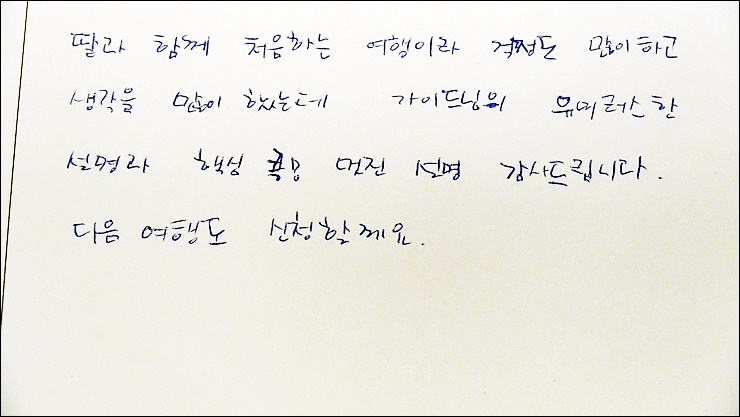 딸과 함께 처음하는 여행이라 걱정도 많이 하고
생각을 많이 했는데 가이드님의 유머러스한
설명과 핵심 멋진 설명 감사드립니다.
다음 여행도 신청할께요.